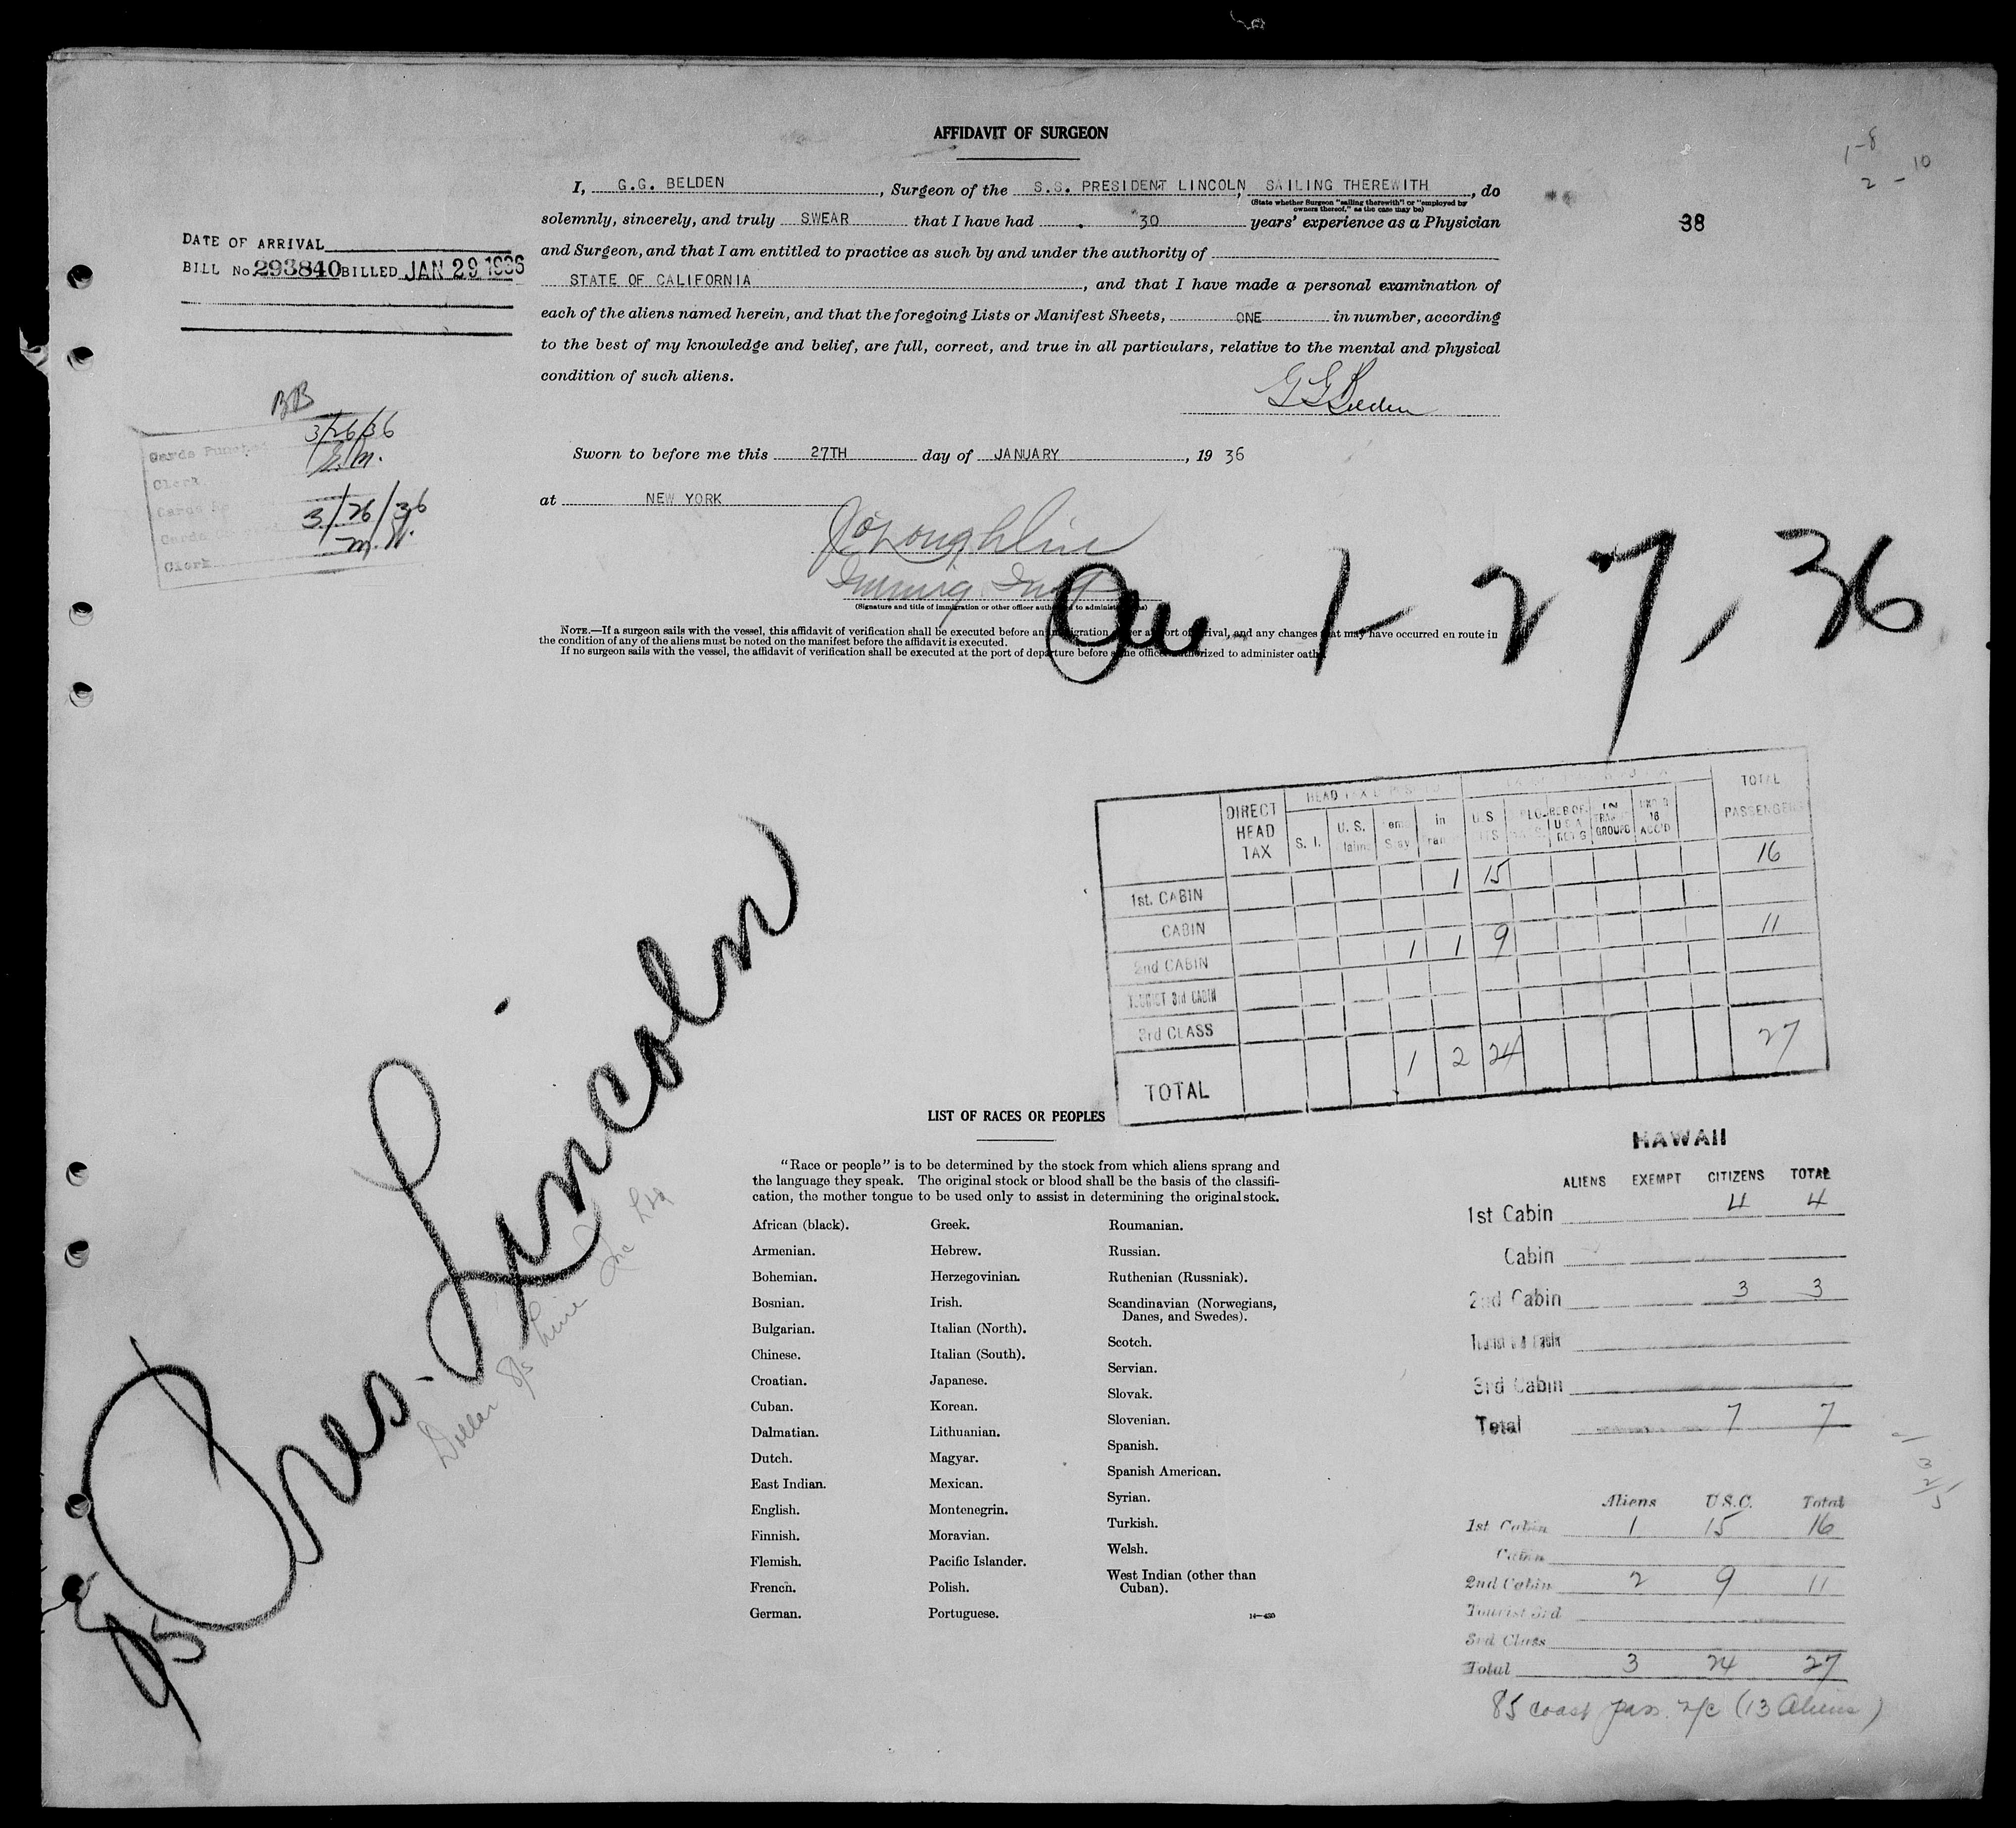 AFFIDAVIT OF SURGEON
1-8
2-10
I, G.G. BELDEN, Surgeon of the S.S. PRESIDENT LINCOLN, SAILING THEREWITH, do
(State whether Surgeon "sailing therewith" or "employed by owners thereof," as the case may be)
solemnly, sincerely, and truly SWEAR that I have had 30 years' experience as a Physician
38
and Surgeon, and that I am entitled to practice as such by and under the authority of
STATE OF CALIFORNIA, and that I have made a personal examination of
each of the aliens named herein, and that the foregoing Lists or Manifest Sheets, ONE in number, according
to the best of my knowledge and belief, are full, correct, and true in all particulars, relative to the mental and physical
condition of such aliens.
G G Belden
DATE OF ARRIVAL
BILL No 293840 BILLED JAN 29 1936
BB
Cards Punched 3/26/36
Clerk
3/26/36
Clerk
Sworn to before me this 27TH day of JANUARY, 19 36
at NEW YORK
Immig Insp
(Signature and title of immigration or other officer authorized to administer oaths)
1-27, 36
NOTE.—If a surgeon sails with the vessel, this affidavit of verification shall be executed before an immigration officer at port of arrival, and any changes that may have occurred en route in
the condition of any of the aliens must be noted on the manifest before the affidavit is executed.
If no surgeon sails with the vessel, the affidavit of verification shall be executed at the port of departure before some officer authorized to administer oaths.
DIRECT HEAD TAX
HEAD TAX
S. I.
U. S.
U. S.
IN
GROUPS
TOTAL PASSENGERS
1st. CABIN 1 15 16
CABIN
2nd CABIN 1 1 9 11
TOURIST 3rd CABIN
3rd CLASS
TOTAL 1 2 24 27
Pres. Lincoln
Dollar SS Line Inc Ltd
95
LIST OF RACES OR PEOPLES
"Race or people" is to be determined by the stock from which aliens sprang and
the language they speak. The original stock or blood shall be the basis of the classifi-
cation, the mother tongue to be used only to assist in determining the original stock.
African (black).
Armenian.
Bohemian.
Bosnian.
Bulgarian.
Chinese.
Croatian.
Cuban.
Dalmatian.
Dutch.
East Indian.
English.
Finnish.
Flemish.
French.
German.
Greek.
Hebrew.
Herzegovinian.
Irish.
Italian (North).
Italian (South).
Japanese.
Korean.
Lithuanian.
Magyar.
Mexican.
Montenegrin.
Moravian.
Pacific Islander.
Polish.
Portuguese.
Roumanian.
Russian.
Ruthenian (Russniak).
Scandinavian (Norwegians,
Danes, and Swedes).
Scotch.
Servian.
Slovak.
Slovenian.
Spanish.
Spanish American.
Syrian.
Turkish.
Welsh.
West Indian (other than
Cuban).
14—430
HAWAII
ALIENS EXEMPT CITIZENS TOTAL
1st Cabin 4 4
Cabin
2nd Cabin 3 3
Tourist 3rd Cabin
3rd Cabin
Total 7 7
3
2
5
Aliens U.S.C. Total
1st Cabin 1 15 16
Cabin
2nd Cabin 2 9 11
Tourist 3rd
3rd Class
Total 3 24 27
85 coast pass. (13 Aliens)